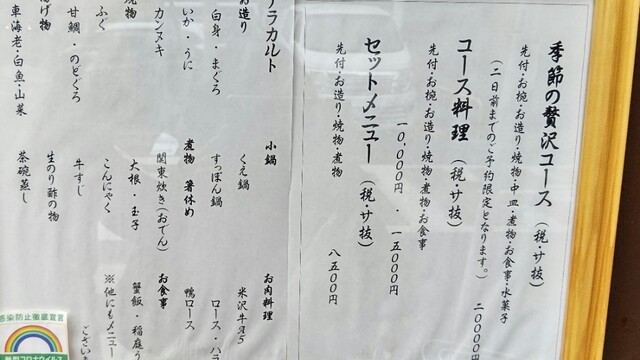 季節の贅沢コース（税・サ抜）
先付・お椀・お造り・焼物・中皿・煮物・お食事・水菓子
（二日前までのご予約限定となります。）
二0000円
コース料理（税・サ抜）
先付・お椀・お造り・焼物・煮物・お食事
一0,000円・一五000円
セットメニュー（税・サ抜）
先付・お造り・焼物・煮物
八五00円
アラカルト
お造り
白身・まぐろ
いか・うに
カンヌキ
焼物
ふぐ
甘鯛・のどぐろ
揚げ物
車海老・白魚・山菜
小鍋
くえ鍋
すっぽん鍋
煮物 箸休め
関東炊き（おでん）
大根・玉子
こんにゃく
牛すじ
生のり酢の物
茶碗蒸し
お肉料理
米沢牛A5
ロース・
鴨ロース
お食事
蟹飯・稲庭う
※他にもメニュー
ござい
感染防止徹底宣言
新型コロナウイルス